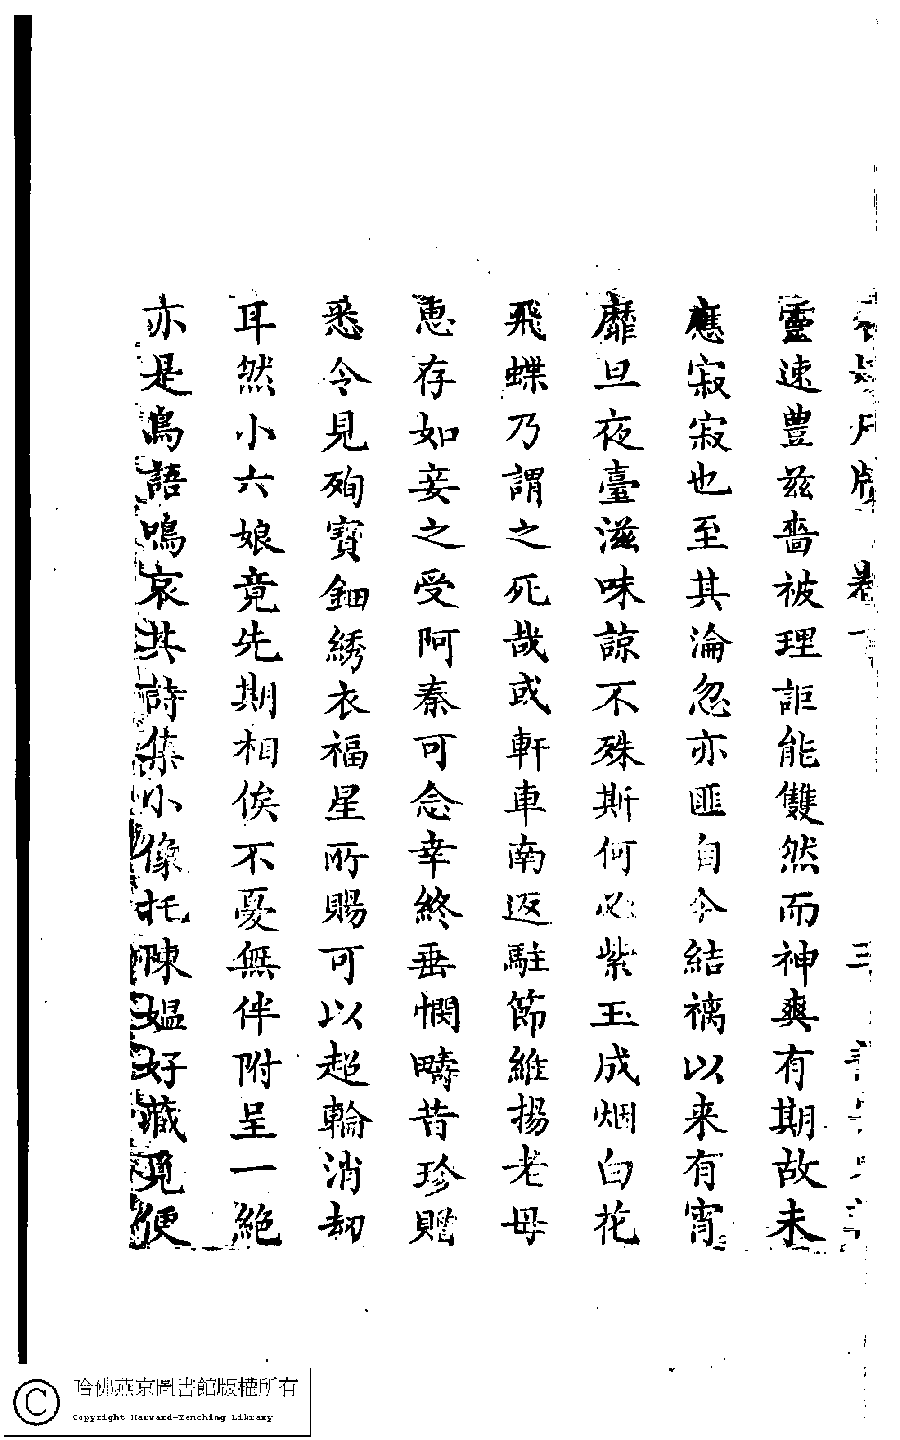 靈速豊茲嗇被理詎能雙然而神爽有期故未
應寂寂也至其淪忽亦匪自今結褵以来有宵
靡旦夜臺滋味諒不殊斯何必紫玉成烟白花
飛蝶乃謂之死哉或軒車南返駐節維揚老母
恵存如妾之受阿秦可念幸終垂憫疇昔珍贈
悉令見殉寶鈿綉衣福星所賜可以超輪消劫
耳然小六娘竟先期相俟不憂無伴附呈一絶
亦是鳥語鳴哀其詩集小像托陳媼好藏覓便
哈佛燕京圖書館版權所有
Copyright Harvard-Yenching Library